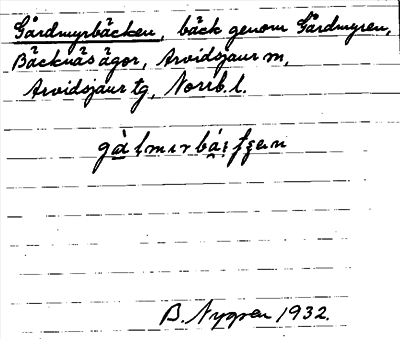 Gårdmyrbäcken, bäck genom Gårdmyren,
Bäcknäs ägor, Arvidsjaur m,
Arvidsjaur tg, Norrb. l.
B. Nygren 1932.